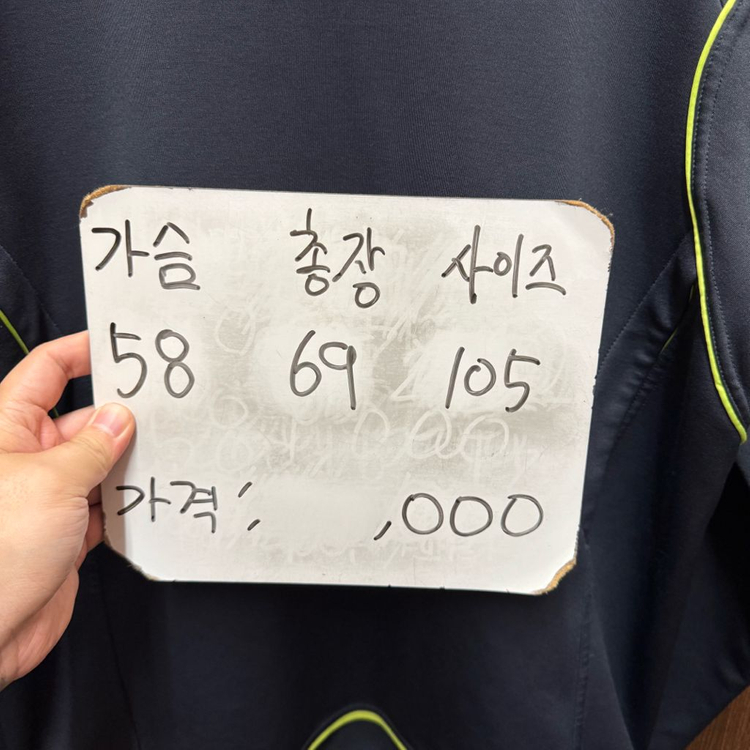 가슴 총장 사이즈
58 69 105
가격: ,000